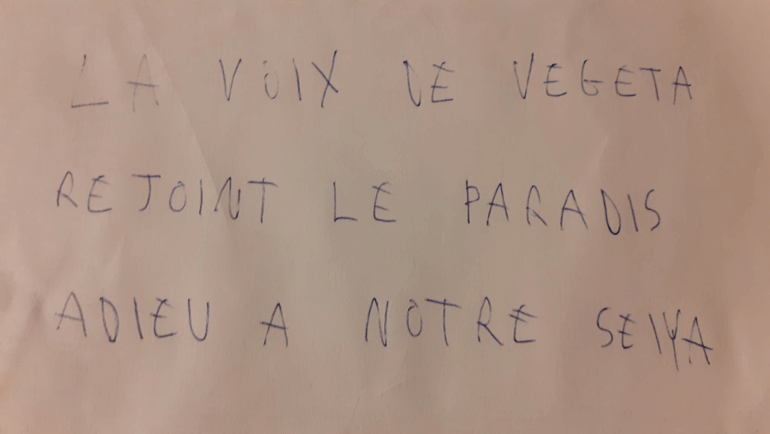 LA VOIX DE VEGETA
REJOINT LE PARADIS
ADIEU A NOTRE SEIYA